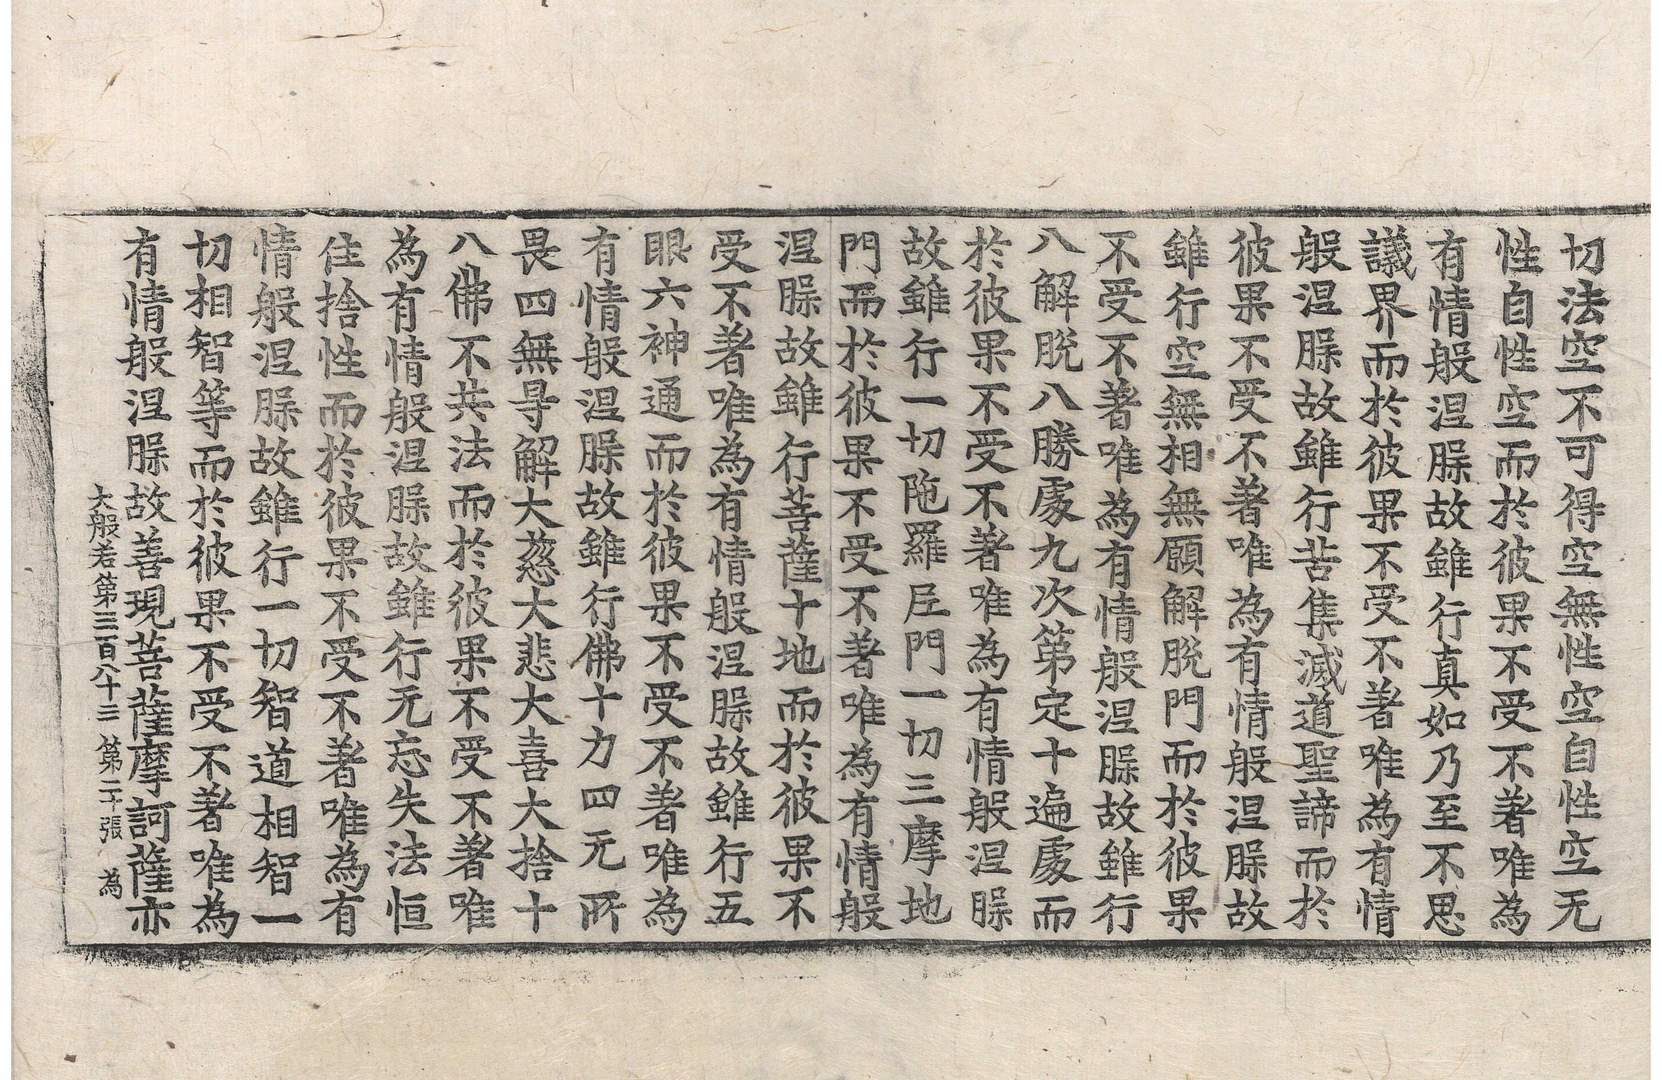 切法空不可得空無性空自性空无
性自性空而於彼果不受不著唯為
有情般涅槃故雖行真如乃至不思
議界而於彼果不受不著唯為有情
般涅槃故雖行苦集滅道聖諦而於
彼果不受不著唯為有情般涅槃故
雖行空無相無願解脫門而於彼果
不受不著唯為有情般涅槃故雖行
八解脫八勝處九次第定十遍處而
於彼果不受不著唯為有情般涅槃
故雖行一切陁羅尼門一切三摩地
門而於彼果不受不著唯為有情般
涅槃故雖行菩薩十地而於彼果不
受不著唯為有情般涅槃故雖行五
眼六神通而於彼果不受不著唯為
有情般涅槃故雖行佛十力四无所
畏四無㝵解大慈大悲大喜大捨十
八佛不共法而於彼果不受不著唯
為有情般涅槃故雖行无忘失法恒
住捨性而於彼果不受不著唯為有
情般涅槃故雖行一切智道相智一
切相智等而於彼果不受不著唯為
有情般涅槃故善現菩薩摩訶薩亦
大般若第三百八十三 第二十張 為